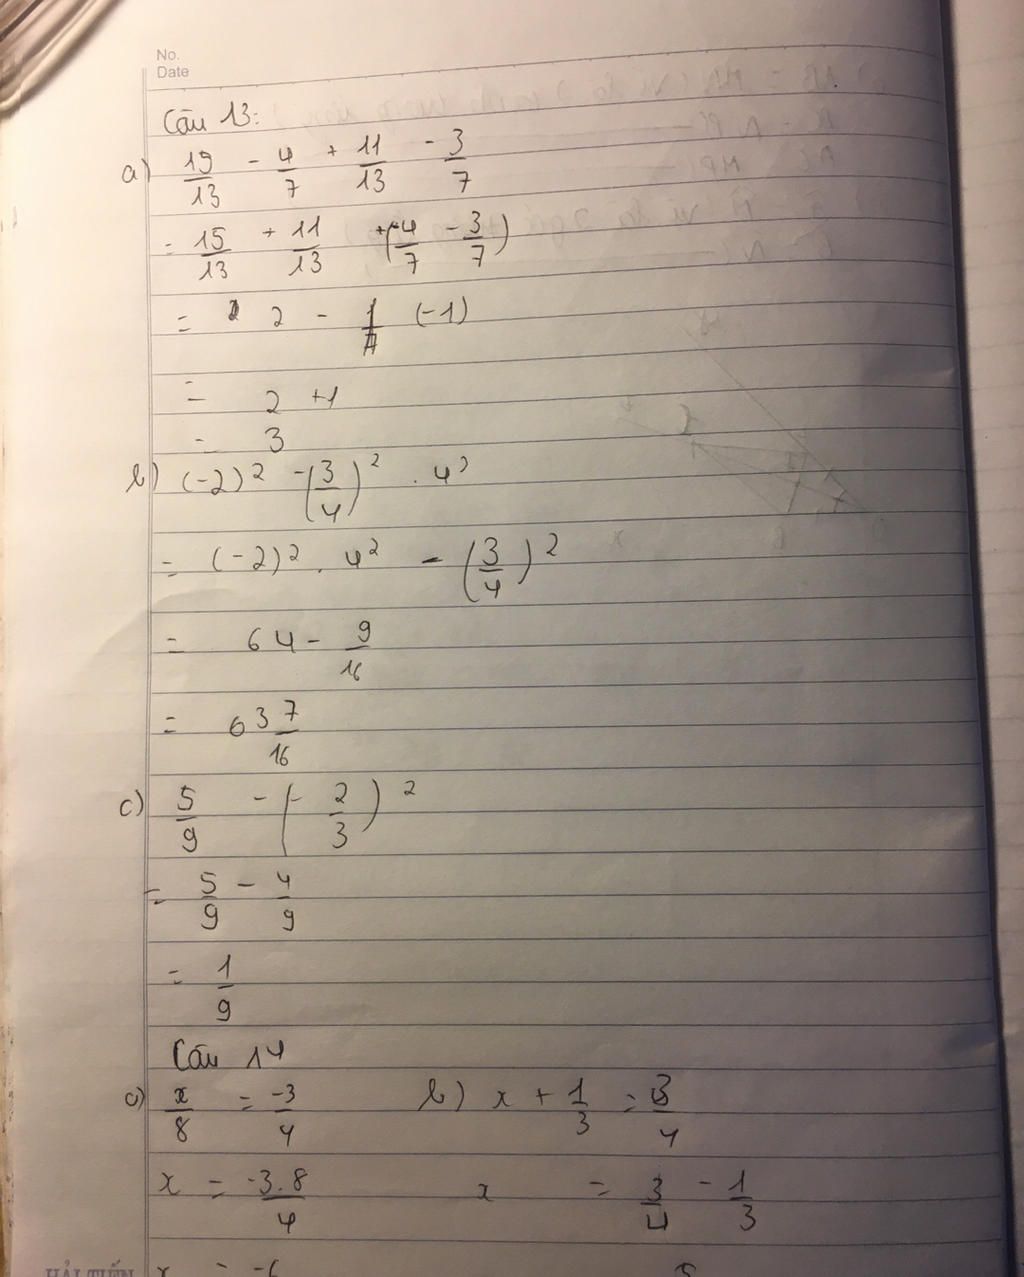 No.
Date
Câu 13:
a) 19/13 - 4/7 + 11/13 - 3/7
= 15/13 + 11/13 + (-4/7 - 3/7)
= 2 - 1 (-1)
= 2 + 1
= 3
b) (-2)² - (3/4)² . 4²
= (-2)² . 4² - (3/4)²
= 64 - 9/16
= 63 7/16
c) 5/9 - (- 2/3)²
= 5/9 - 4/9
= 1/9
Câu 14
a) x/8 = -3/4 b) x + 1/3 = 3/4
x = -3.8/4 x = 3/4 - 1/3
x = -6 5
HẢI TIẾN